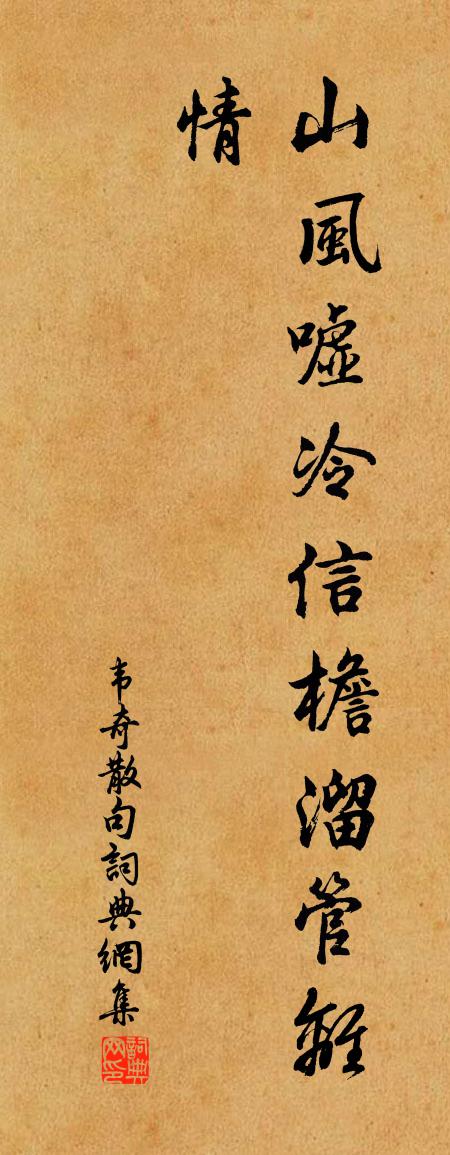 山風嘘冷信檐溜管離
情
韦奇散句詞典網集
詞典网印